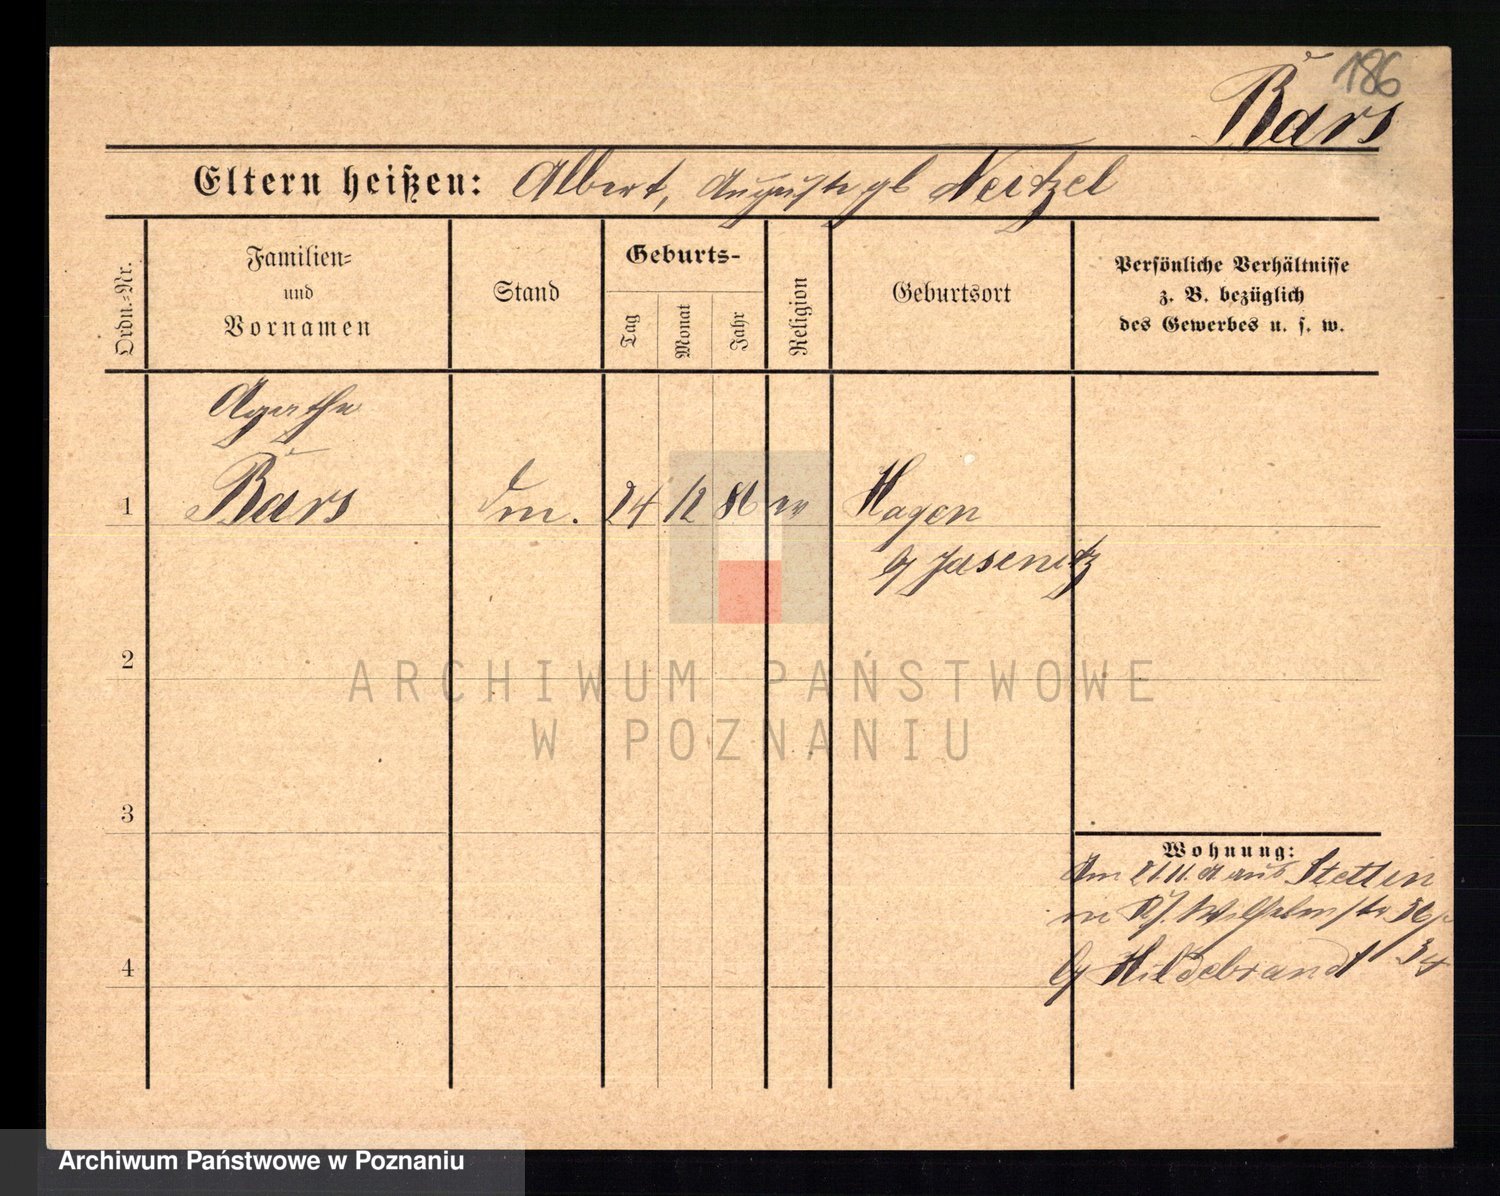 186
Bärs
Eltern heißen: Albert, Auguste gb Neitzel
Ordn.-Nr.
Familien-
und
Vornamen
Stand
Geburts-
Tag
Monat
Jahr
Religion
Geburtsort
Persönliche Verhältnisse
z. B. bezüglich
des Gewerbes u. s. w.
Agathe
1 Bärs 24 12 86 ev Hagen
Jasenitz
2
3
4
Wohnung:
Am 21.11. aus Stettin
in Wilhelmstr
Hildebrandt
ARCHIWUM PAŃSTWOWE
W POZNANIU
Archiwum Państwowe w Poznaniu